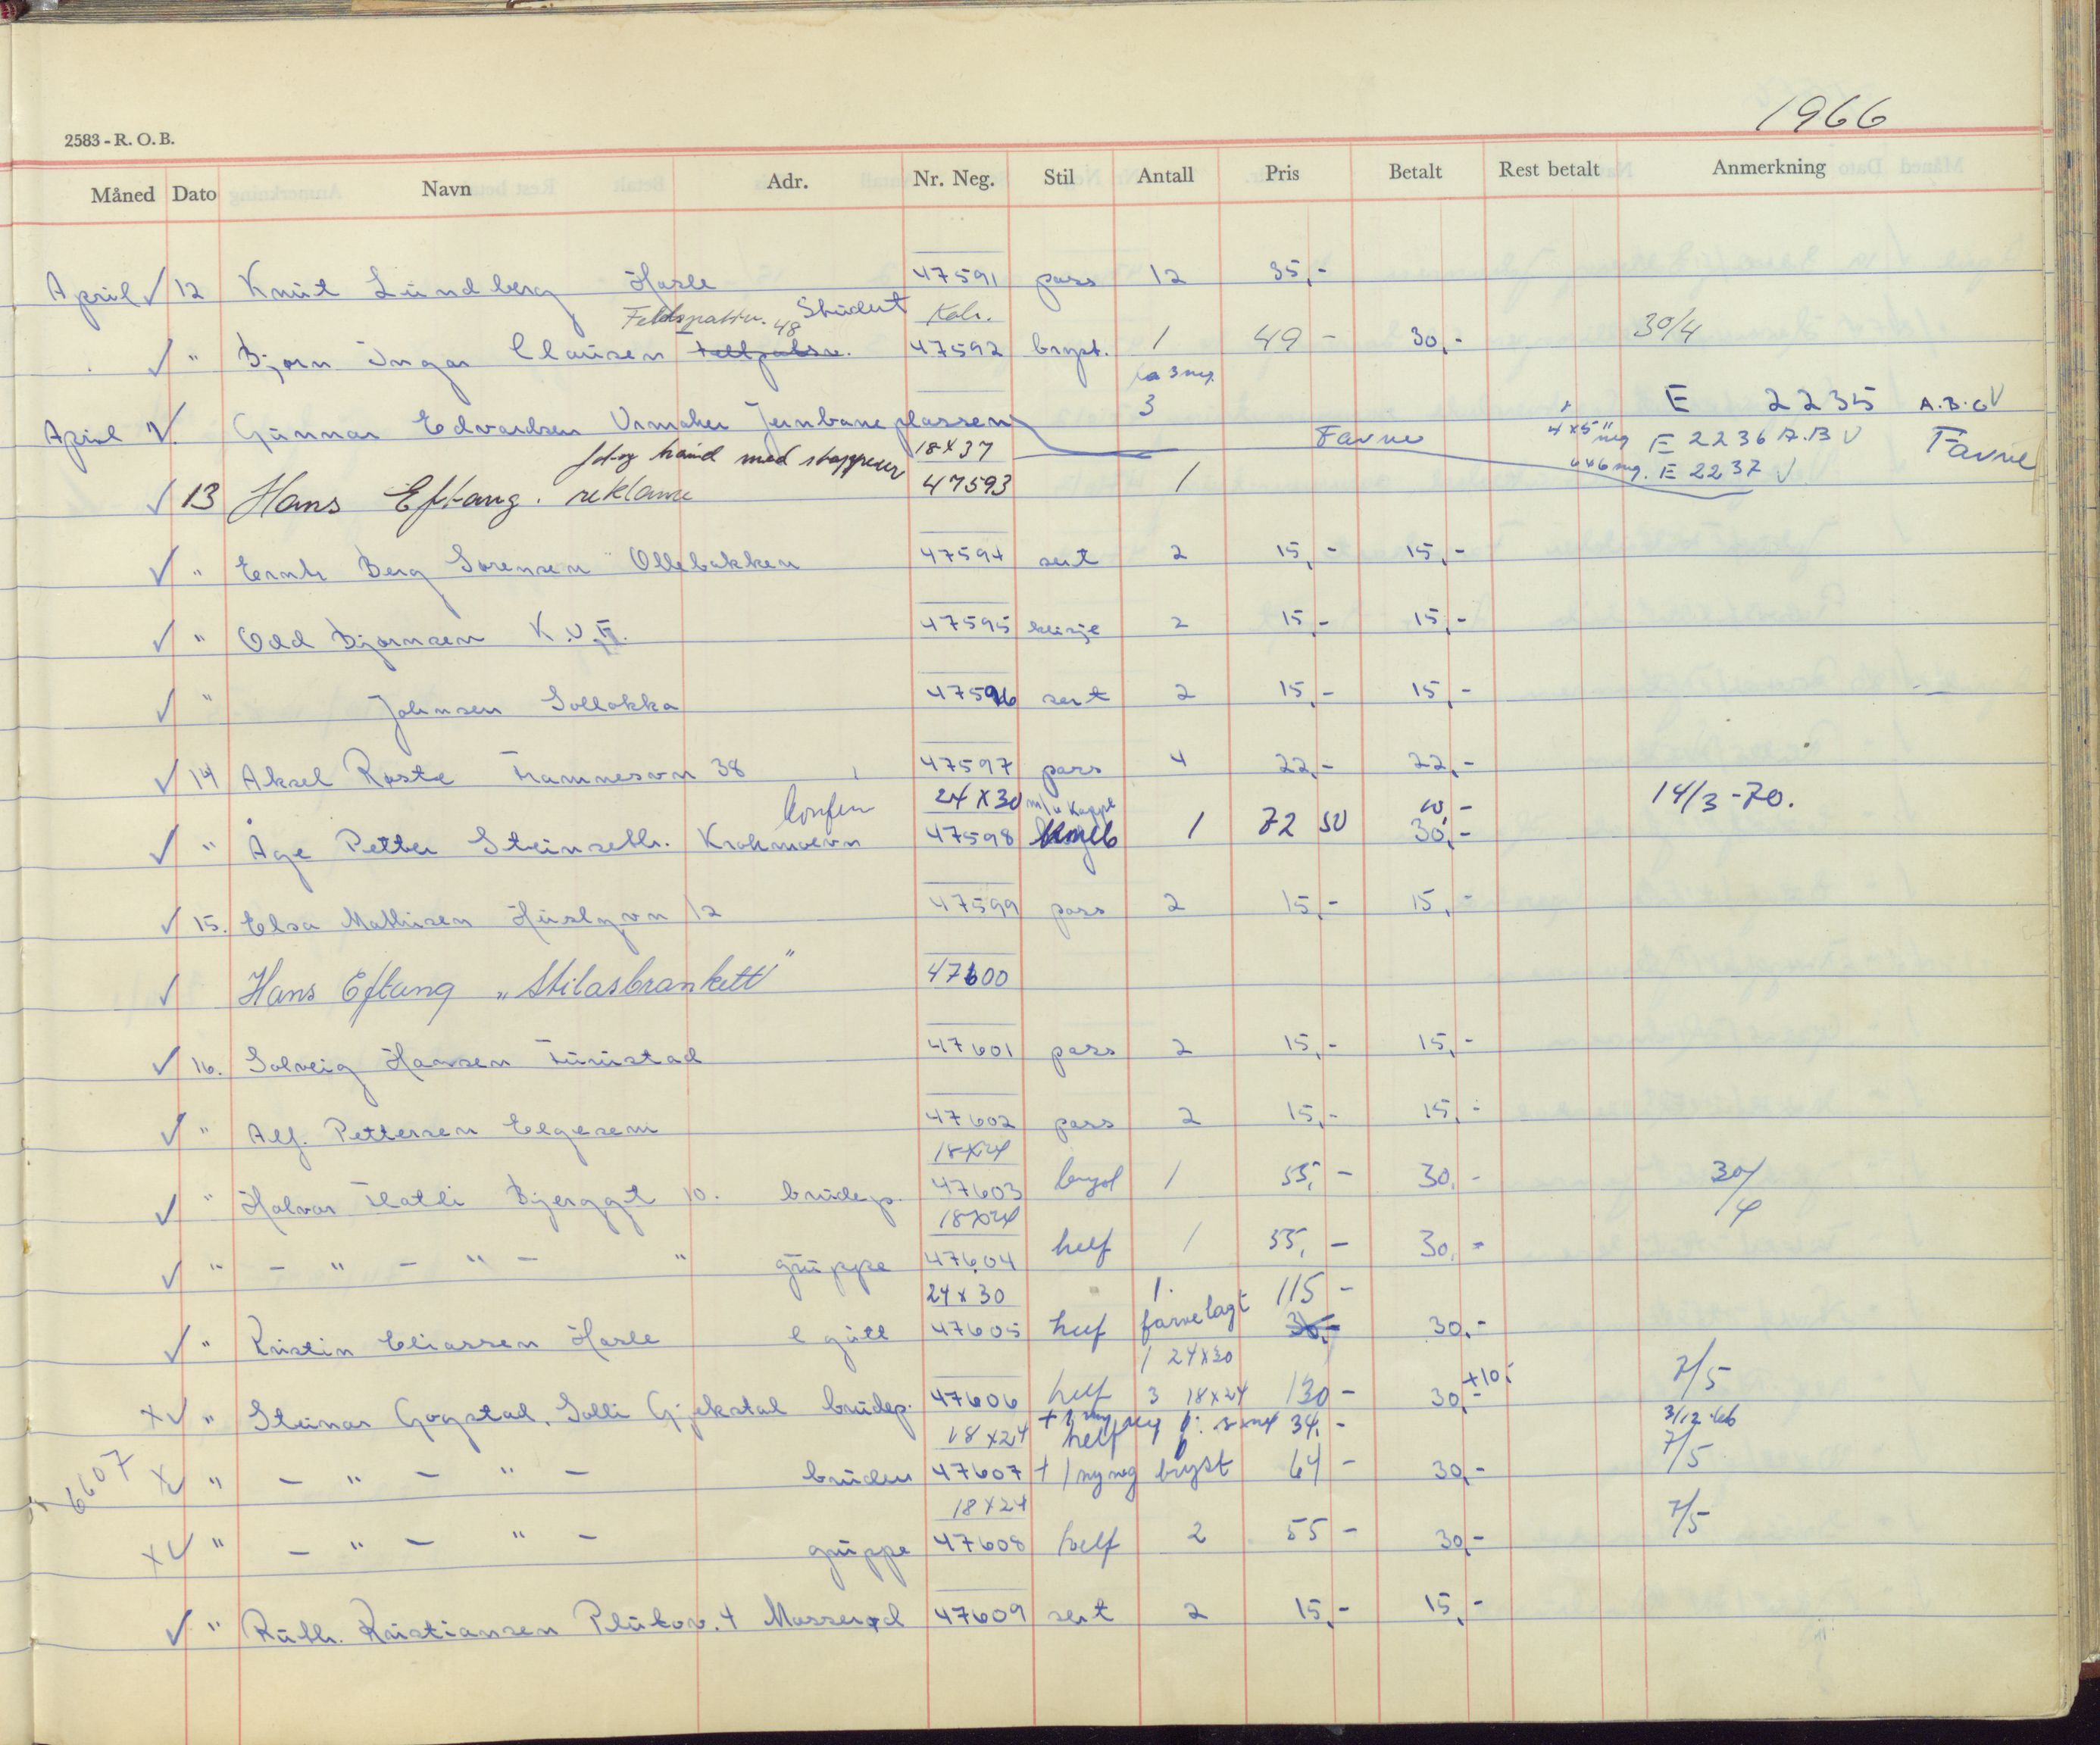 1966
2583 - R. O. B.
Måned Dato Navn Adr. Nr. Neg. Stil Antall Pris Betalt Rest betalt Anmerkning
April ✓ 12 Knut Lundberg Hasle 47591 pass 12 35,-
Student Kab.
✓ " Bjørn Ingar Clausen 48 47592 bryst. 1 49 - 30,- 30/4
3 neg.
April " ✓. Gunnar Edvardsen Urmaker Jernbaneplassen 3 Favne E 2235 A.B.C V
4x5" neg E 2236 A.B V Favne
fotog hånd med stoppeur 18x37 6x6 neg. E 2237 V
✓ 13 Hans Eftang. reklame 47593 1
✓ " Berg Sørensen Ollebakken 47594 sert 2 15,- 15,-
✓ " Odd Bjørnsen K.V.II. 47595 2 15,- 15,-
✓ " Johnsen Solløkka 47596 sert 2 15,- 15,-
✓ 14 Aksel Røste Framnesvn 38 47597 pass 4 22,- 22,-
konfm 24 x 30 10,- 14/3 -70.
✓ " Åge Petter Steinseth. Krokmoevn 47598 1 72 50 30,-
✓ 15. Elsa Mathisen 12 47599 pass 2 15,- 15,-
✓ Hans Eftang „Stilasbrankett" 47600
✓ 16. Solveig Hansen Furustad 47601 pass 2 15,- 15,-
✓ " Alf. Pettersen Elgesem 47602 pass 2 15,- 15,-
18x24
✓ " Halvar Flatli Bjerggt 10. brudep. 47603 bryst 1 55,- 30,- 30/4
18x24
✓ " - " - " - " gruppe 47604 helf 1 55,- 30,-
24 x 30 1. 115 -
✓ " Kristin Eliassen Hasle 1 gutt 47605 helf farvelagt 30,- 30,-
1 24x30
x✓ " Steinar Gogstad, Solli Gjekstad brudep. 47606 helf 3 18x24 130 - 30,- +10,- 7/5
18x24 helf 34,- 3/12-66
6607 x✓ " - " - " - bruden 47607 + 1 ny neg bryst 64 - 30,- 7/5
18x24
x✓ " - " - " - gruppe 47608 helf 2 55 - 30,- 7/5
✓ " Ruth. Kristiansen Plutov. 4 Mosserød 47609 sert 2 15,- 15,-